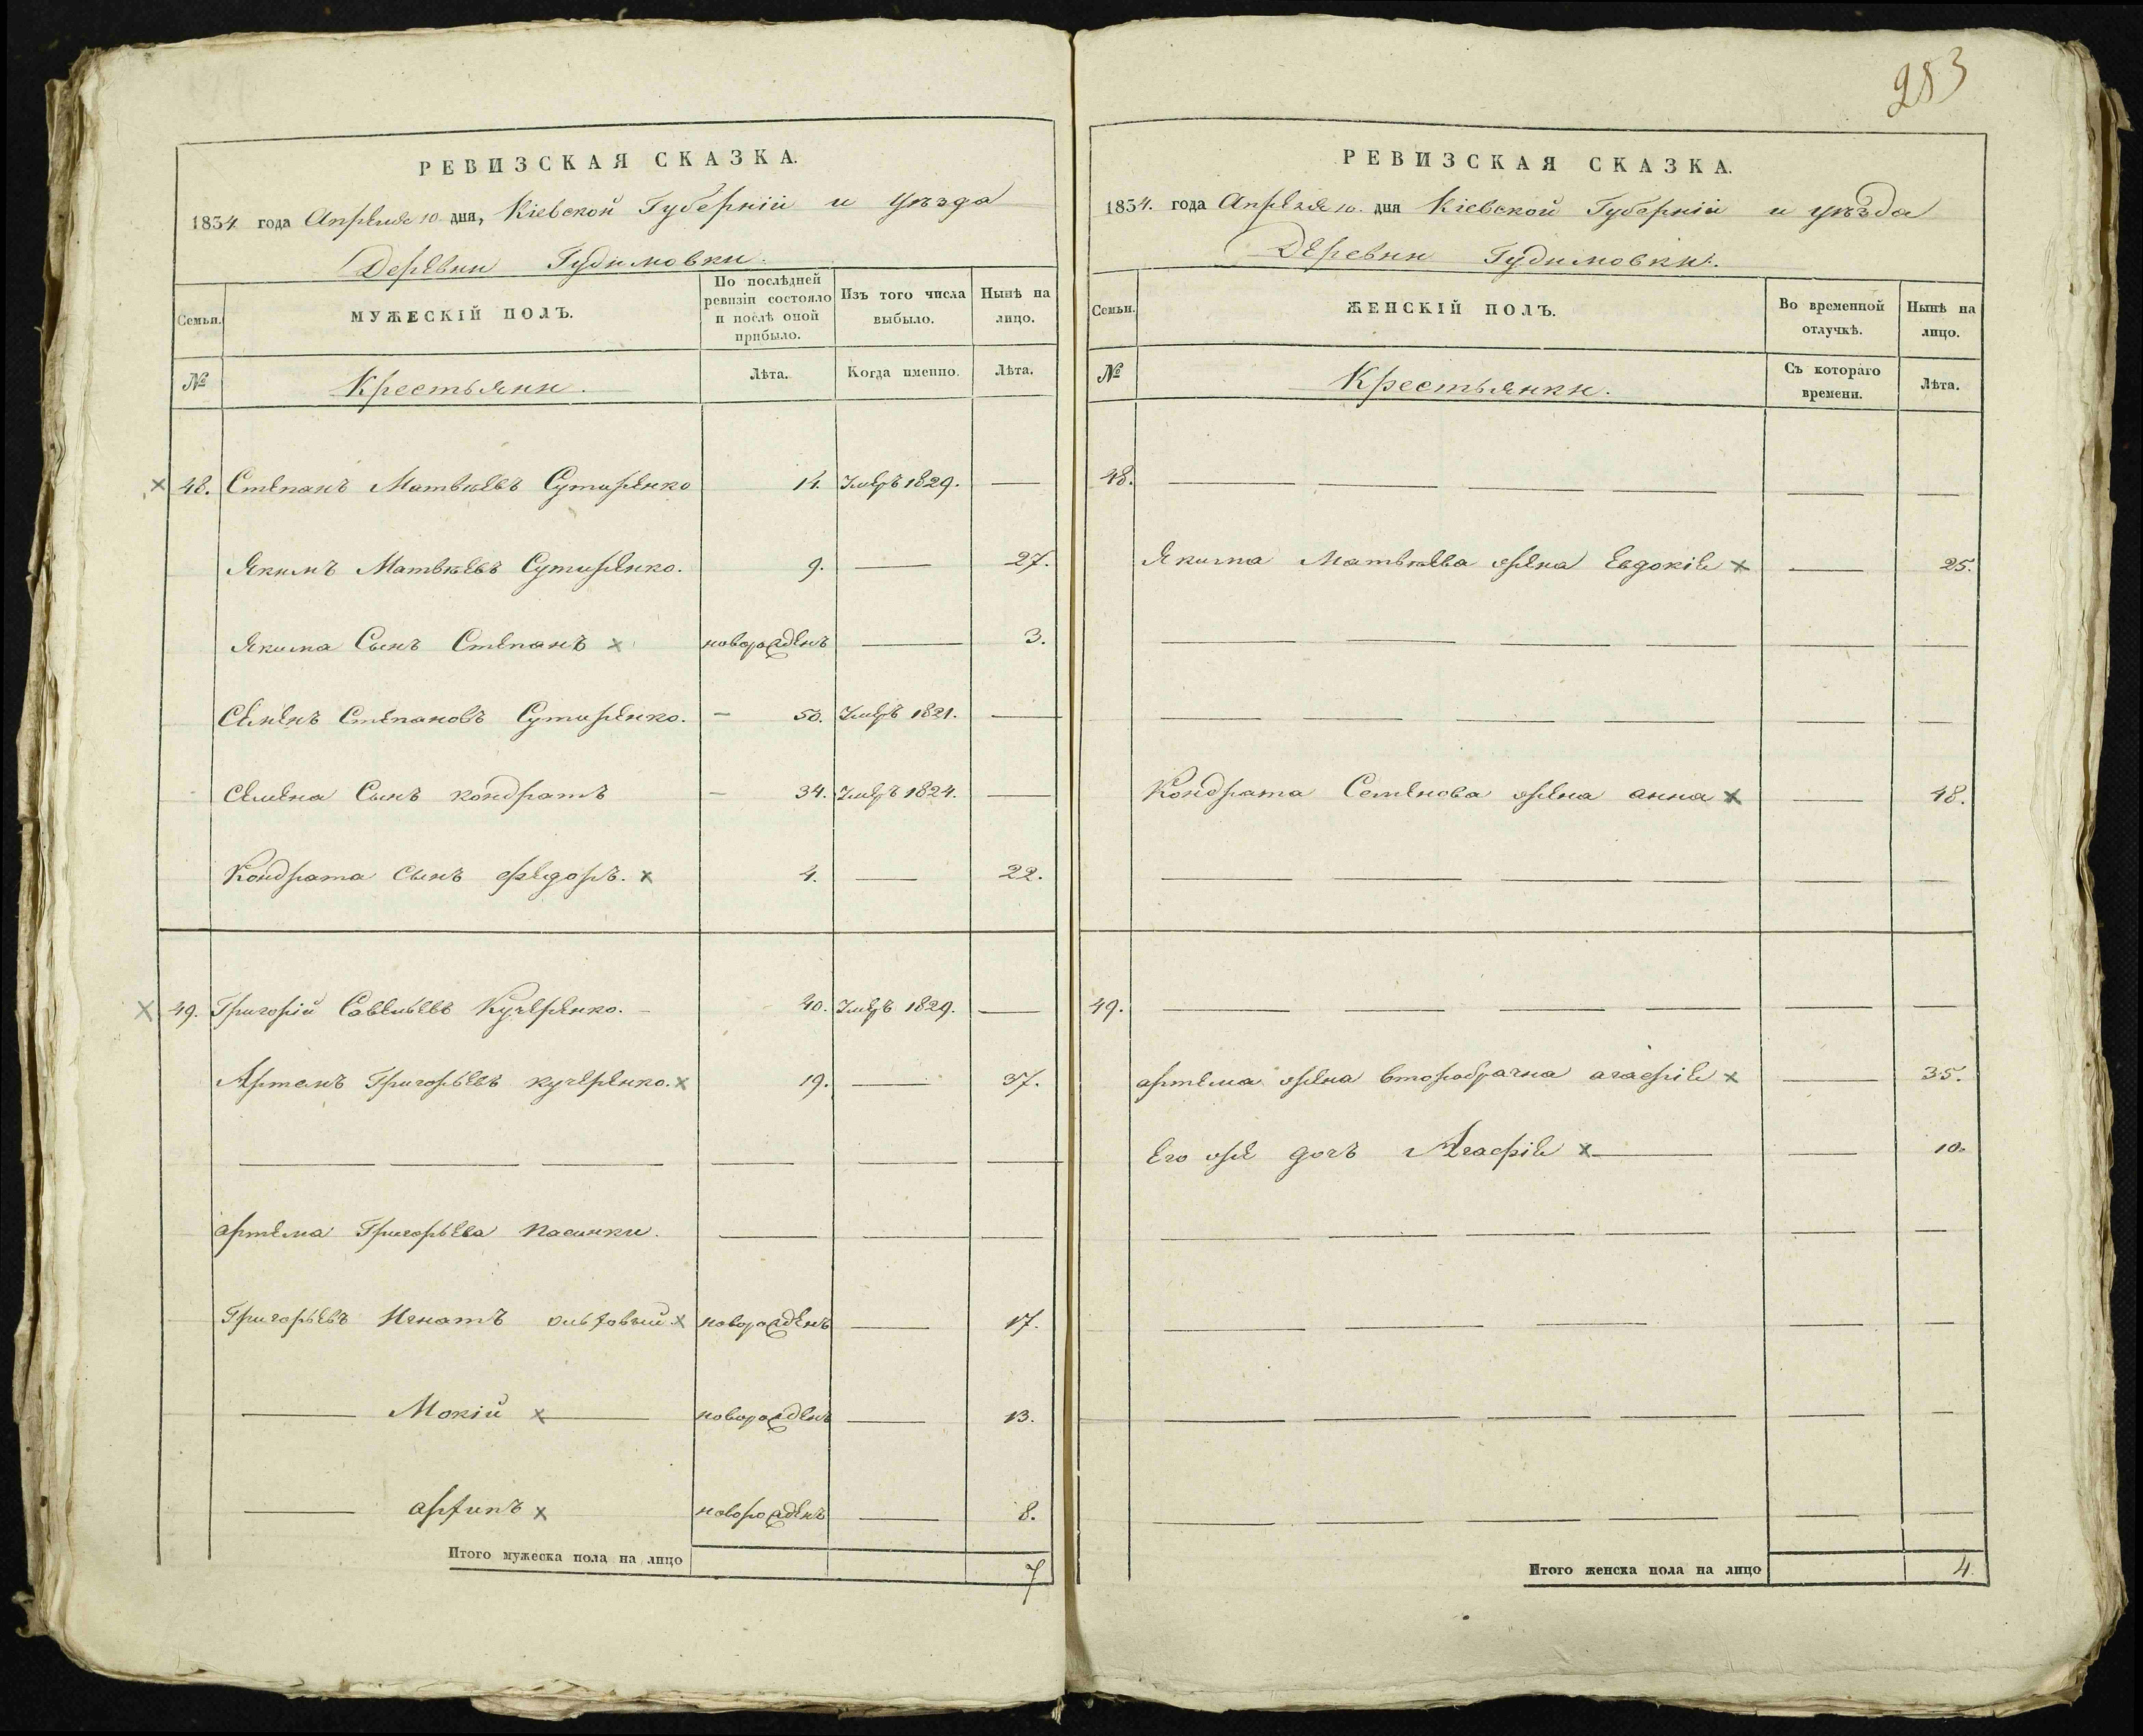 283
РЕВИЗСКАЯ СКАЗКА.
1834 года Апреля 10 дня, Кіевской Губерніи и уѣзда
Деревни Гудимовки.
Семьи. МУЖЕСКІЙ ПОЛЪ. По послѣдней ревизіи состояло и послѣ оной прибыло. Изъ того числа выбыло. Нынѣ на лицо.
№ Крестьяни. Лѣта. Когда именно. Лѣта.
48. Степанъ Матвѣевъ Сутиренко 14. Умеръ 1829. —
Якимъ Матвѣевъ Сутиренко. 9. — 27.
Якима Сынъ Степанъ × новорожденъ — 3.
Семенъ Степановъ Сутиренко. — 50. Умеръ 1821. —
Семена Сынъ кондратъ — 34. Умеръ 1824. —
Кондрата сынъ федоръ. × 4. — 22.
49. Григорій Савельевъ Кучеренко. — 40. Умеръ 1829. —
Артемъ Григорьевъ кучеренко. × 19. — 37.
артема Григорьева пасинки.
Григорьевъ Игнатъ × новорожденъ — 17.
— Мокій × — новорожденъ — 13.
— архипъ × новорожденъ — 8.
Итого мужеска пола на лицо 7
РЕВИЗСКАЯ СКАЗКА.
1834. года Апреля 10. дня Кіевской Губерніи и уѣзда
Деревни Гудимовки.
Семьи. ЖЕНСКІЙ ПОЛЪ. Во временной отлучкѣ. Нынѣ на лицо.
№ Крестьянки. Съ котораго времени. Лѣта.
48.
Якима Матвѣева жена Евдокіе × — 25.
Кондрата Семенова жена анна × — 48.
49.
артема жена второбрачна агафіе × — 35.
Его же дочъ Агафіе × — 10.
Итого женска пола на лицо 4.